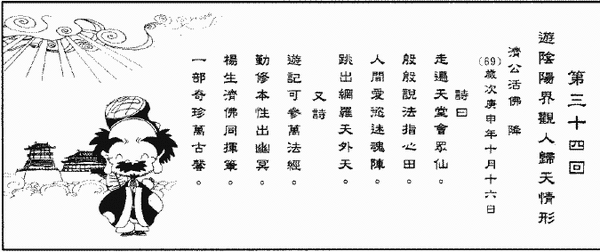 第三十四回
遊陰陽界觀人歸天情形
濟公活佛 降
(69)歲次庚申年十月十六日
詩曰
走遍天堂會眾仙。
般般說法指心田。
人間愛慾迷魂陣。
跳出網羅天外天。
又詩
遊記可參萬法經。
勤修本性出幽冥。
楊生濟佛同揮筆。
一部奇珍萬古馨。